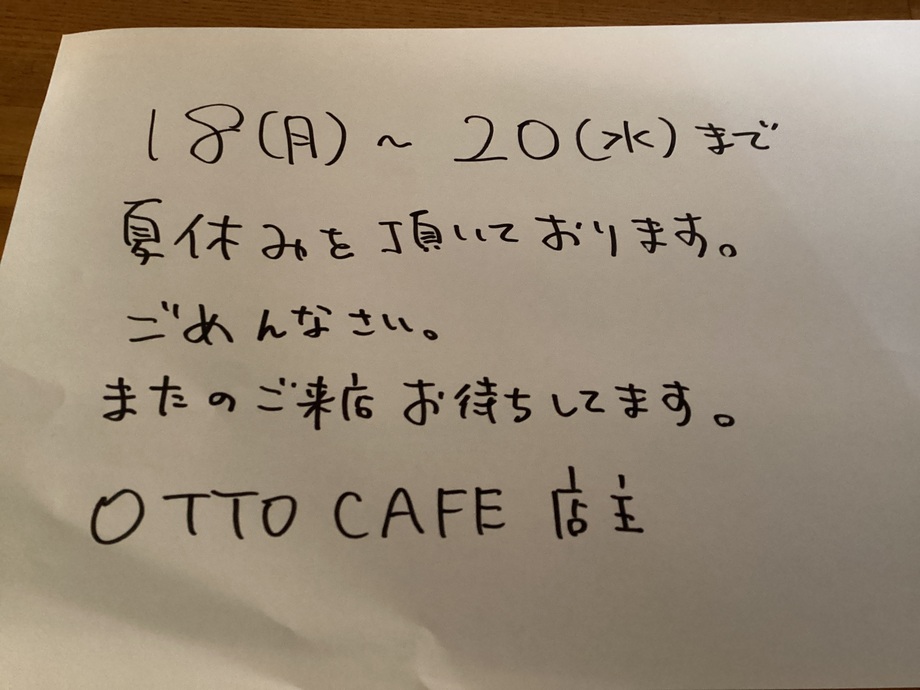 18(月)～20(水)まで
夏休みを頂いております。
ごめんなさい。
またのご来店お待ちしてます。
OTTO CAFE 店主